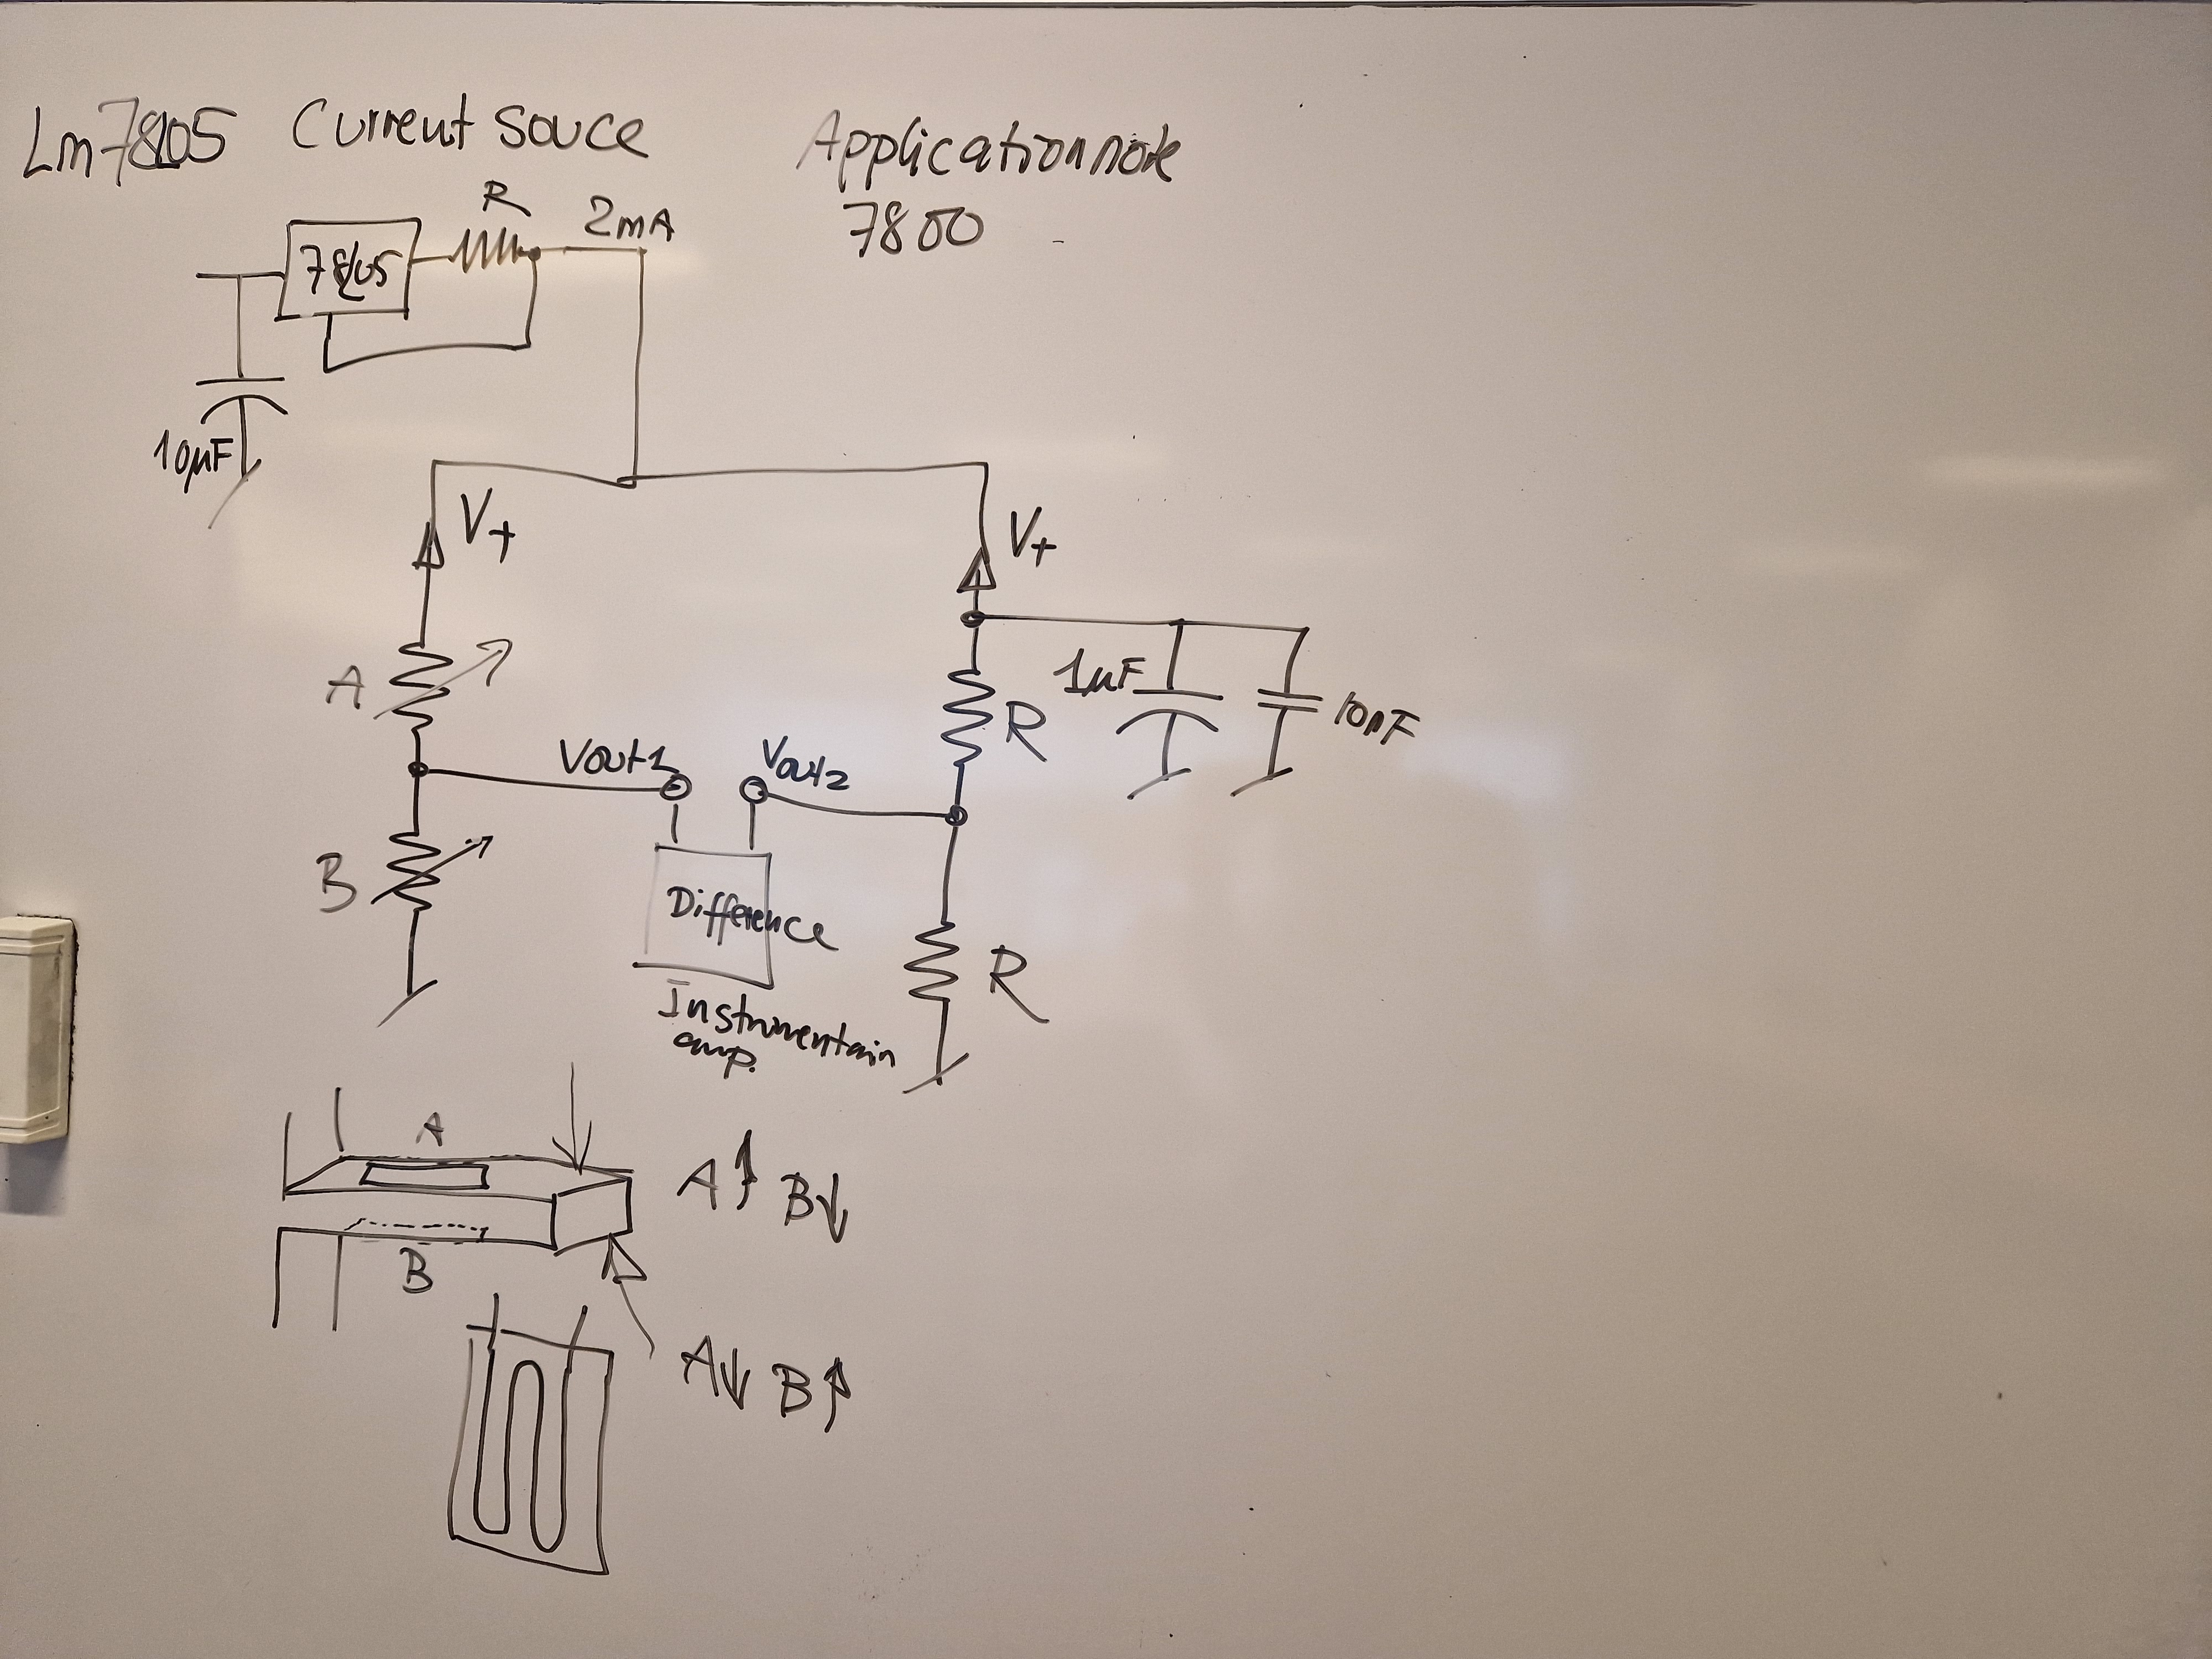 Lm7805 Current Souce
Applicationnote
7800
R
2mA
7805
10µF
V+
V+
A
1µF
10nF
R
Vout1
Vout2
B
Difference
R
Instrumentain
amp.
A
A↑ B↓
B
A↓ B↑